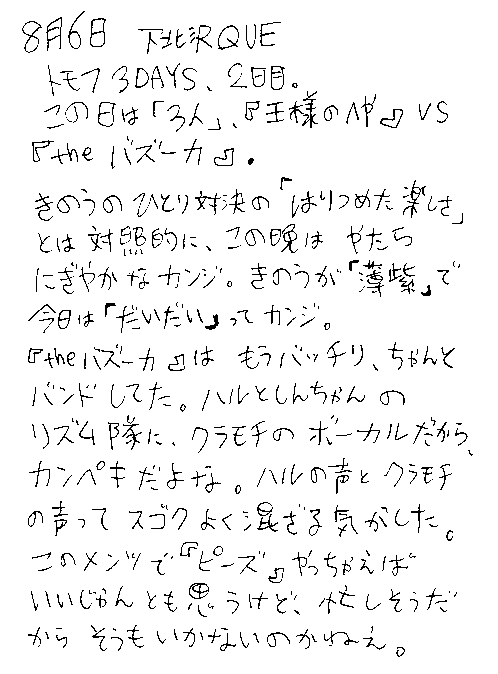 8月6日 下北沢QUE
トモフ3DAYS、2日目。
この日は「3人」、『王様のイヤ』VS
『the バズーカ』。
きのうのひとり対決の「はりつめた楽しさ」
とは対照的に、この晩は やたら
にぎやかなカンジ。きのうが「薄紫」で
今日は「だいだい」ってカンジ。
『the バズーカ』は もうバッチリ、ちゃんと
バンドしてた。ハルとしんちゃんの
リズム隊に、クラモチのボーカルだから、
カンペキだよな。ハルの声とクラモチ
の声って スゴクよく混ざる気がした。
このメンツで『ピーズ』やっちゃえば
いいじゃんとも思うけど、忙しそうだ
から そうもいかないのかねえ。